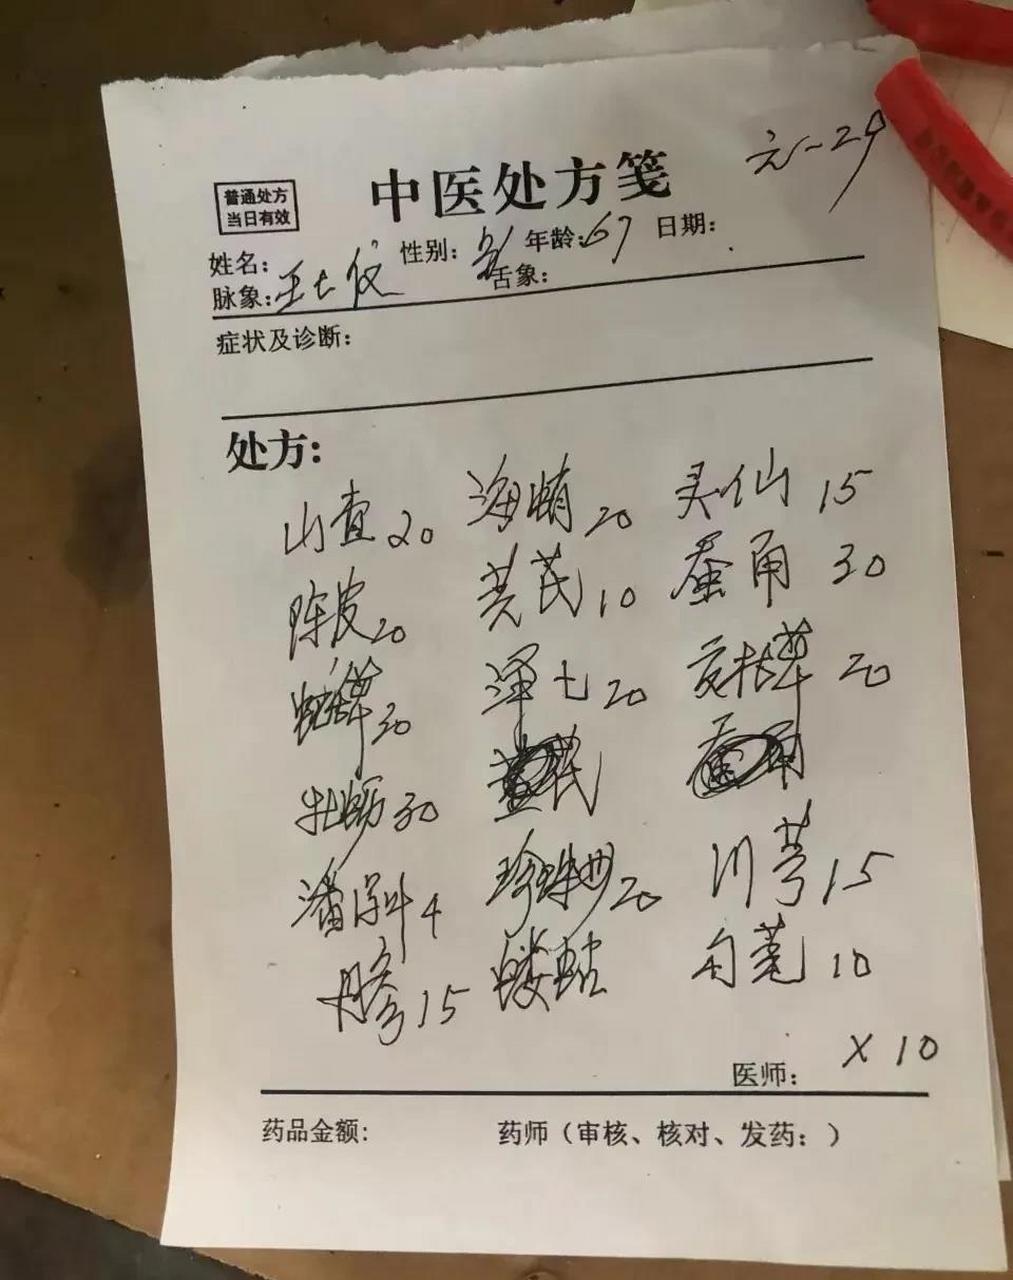 普通处方
当日有效
中医处方笺
姓名: 性别: 年龄:67 日期:
脉象: 舌象:
症状及诊断:
处方:
山查20 海蛸20 灵仙15
陈皮20 黄芪10 蚕甬30
泽七20 20
牡蛎30
4 珍珠母20 川芎15
丹参15 蝼蛄 10
医师: X10
药品金额: 药师（审核、核对、发药：）